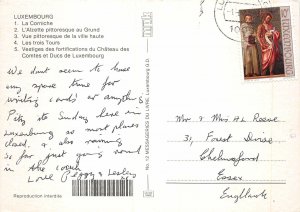 LUXEMBOURG
1. La Corniche
2. L'Alzette pittoresque au Grund
3. Vue pittoresque de la ville haute
4. Les trois Tours
5. Vestiges des fortifications du Château des
Comtes et Ducs de Luxembourg
We dont seem to have
any spare time for
writing cards or anything.
Pity its Sunday here in
Luxembourg as most places
closed, a only
so far just going round
in the coach
Love Peggy & Lesley
Reproduction interdite
No. 12 MESSAGERIES DU LIVRE, Luxembourg G.D.
Mr & Mrs A L Reeve
31, Forest Drive
Chelmsford
Essex
England